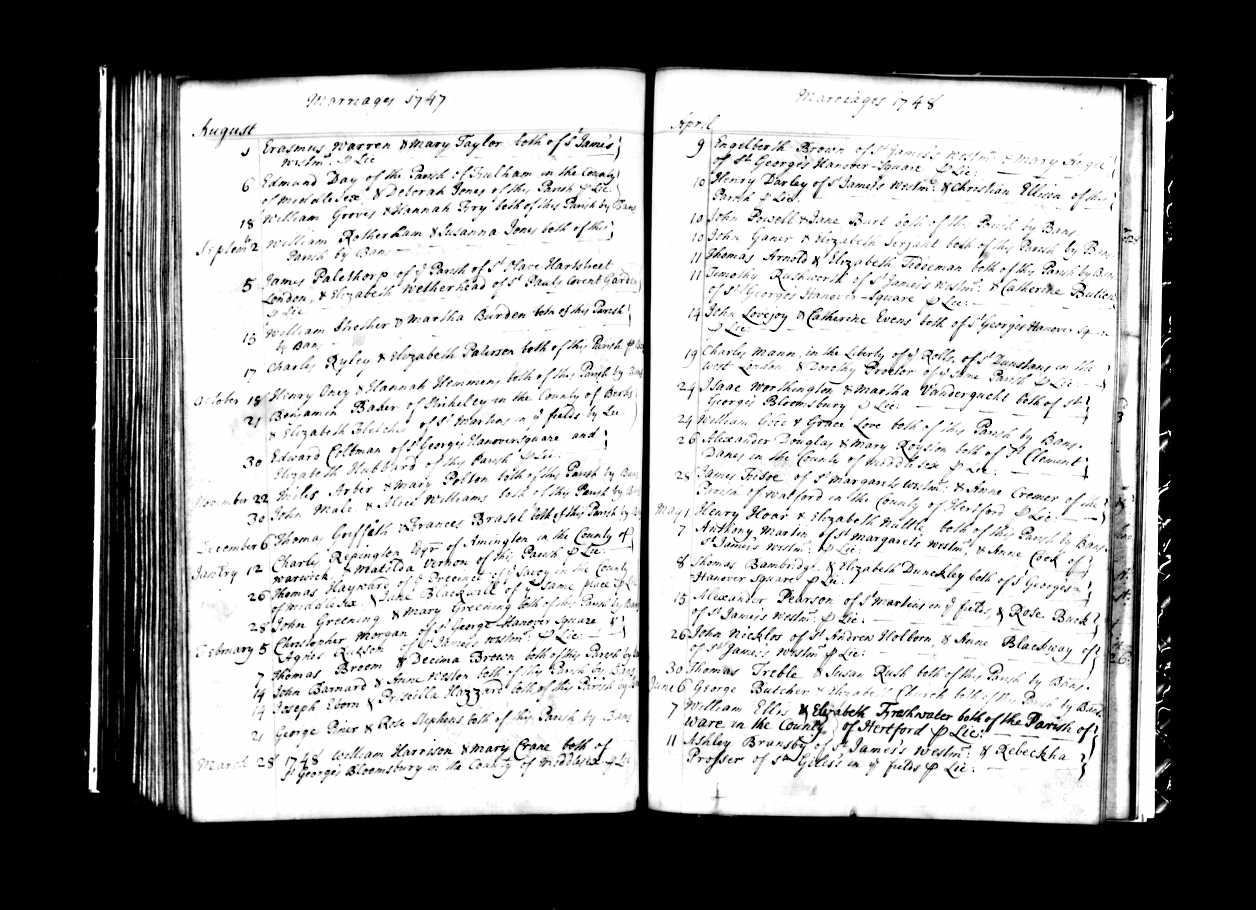 Marriages 1747
August
5 Erasmus Warren & Mary Taylor both of St James
Westmr. p Lie
6 Edmund Day of the Parish of Fulham in the County
of Middlesex & Deborah Jones of this Parish p Lie
18 William Groves & Hannah Fry both of this Parish by Bans
Septembr 2 William Rotherham & Susanna Jones both of this
Parish by Bans
5 James Palethorp of ye Parish of St Olave Hartstreet
London, & Elizabeth Wetherhead of St Pauls Covent Garden
p Lie
13 William Slrether & Martha Burden both of this Parish
by Bans
17 Charles Ryley & Elizabeth Paterson both of this Parish
October 18 Henry Oney & Hannah Hemmens both of this Parish by Bans
21 Benjamin Baker of in the County of Berks
& Elizabeth Fletcher of St Martins in ye fields by Lie
30 Edward Coltman of St Georges Hanover square and
Elizabeth Hubbard of this Parish p Lie
November 22 Miles Arber & Mary Potten both of this Parish by Bans
30 John Male & Alice Williams both of this Parish by
December 6 Thomas Griffeth & Frances Brasel both of this Parish by
Janury 12 Charles Repington Esqr. of Amington in the County of
Warwick & Matilda Vernon of this Parish p Lie
26 Thomas Hayward of ye Precinct of ye Savoy in the County
of Middlesex & Jane Blackwell of ye same place p Lie
28 John Greening & Mary Greening both of this Parish by Bans
February 5 Christopher Morgan of St George Hanover Square &
Agnes Rutson of St James Westmr. p Lie
7 Thomas Broom & Decima Brown both of this Parish by
14 John Barnard & Anne Weston both of this Parish by Bans
14 Joseph Eborn & Priscilla Hazzard both of this Parish by
21 George Piner & Rose Stephens both of this Parish by Bans
March 28 1748 William Harrison & Mary Crane both of
St Georges Bloomsbury in the County of Middlesex p Lie
Marriages 1748
April
9 Engelberth Brown of St James's Westmr. & Mary
of St Georges Hanover-Square p Lie:
10 Henry Darley of St James's Westmr. & Christian Ellison of this
Parish p Lie.
10 John Powell & Jane Burt both of this Parish by Bans
10 John Ganer & Elizabeth Serjant both of this Parish by Bans
11 Thomas Arnold & Elizabeth Tideman both of this Parish by Bans
11 Timothy Rushworth of St James's Westmr. & Catherine Butler
of St Georges Hanover-Square p Lie:
14 John Lovejoy & Catherine Evens both of St Georges Hanover Sq
p Lie
19 Charles Mann, in the Liberty of ye Rolls, of St Dunstans in the
West London, & Dorothy Proctor of same Parish p Lie:
24 Isaac Worthington & Martha Vandergucht both of St
Georges Bloomsbury p Lie:
24 William Gill & Grace Love both of this Parish by Bans.
26 Alexander Douglas & Mary Royston both of St Clement
Danes in the County of Middlesex p Lie:
28 James of St Margarets Westmr: & Anne Cremer of the
Parish of Watford in the County of Hertford p Lie:
May 1 Henry Hoar & Elizabeth Nuttle both of this Parish by Bans.
7 Anthony Martin of St Margarets Westmr: & Anne Cock of
St James's Westmr: p Lie:
8 Thomas Bambridge & Elizabeth Dunckley both of St Georges
Hanover Square p Lie:
15 Alexander Pearson of St Martins in ye fields, & Rose Buck
of St James's Westmr: p Lie:
26 John Nickles of St Andrew Holborn & Anne Blackway of
of St James's Westmr p Lie:
30 Thomas Treble & Susan Rush both of this Parish by Bans.
June 6 George Butcher & Elizabeth Church both of this Parish by Bans
7 William Ellis & Elizabeth Freshwater both of the Parish of
Ware in the County of Hertford p Lie:
11 Ashley Bransby of St James's Westmr: & Rebeckha
Prosser of St Giles's in ye fields p Lie: